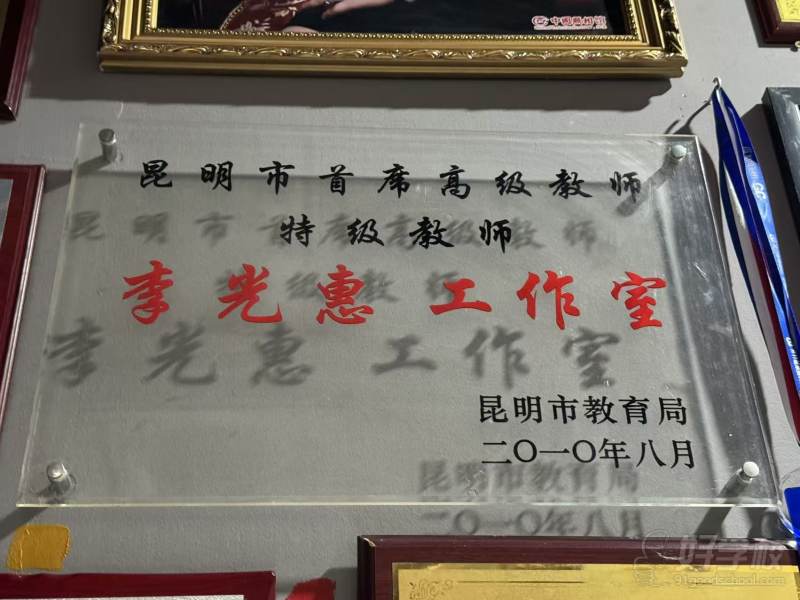 昆明市首席高级教师
特级教师
李光惠 工作室
昆明市教育局
二〇一〇年八月
好学校
91goodschool.com